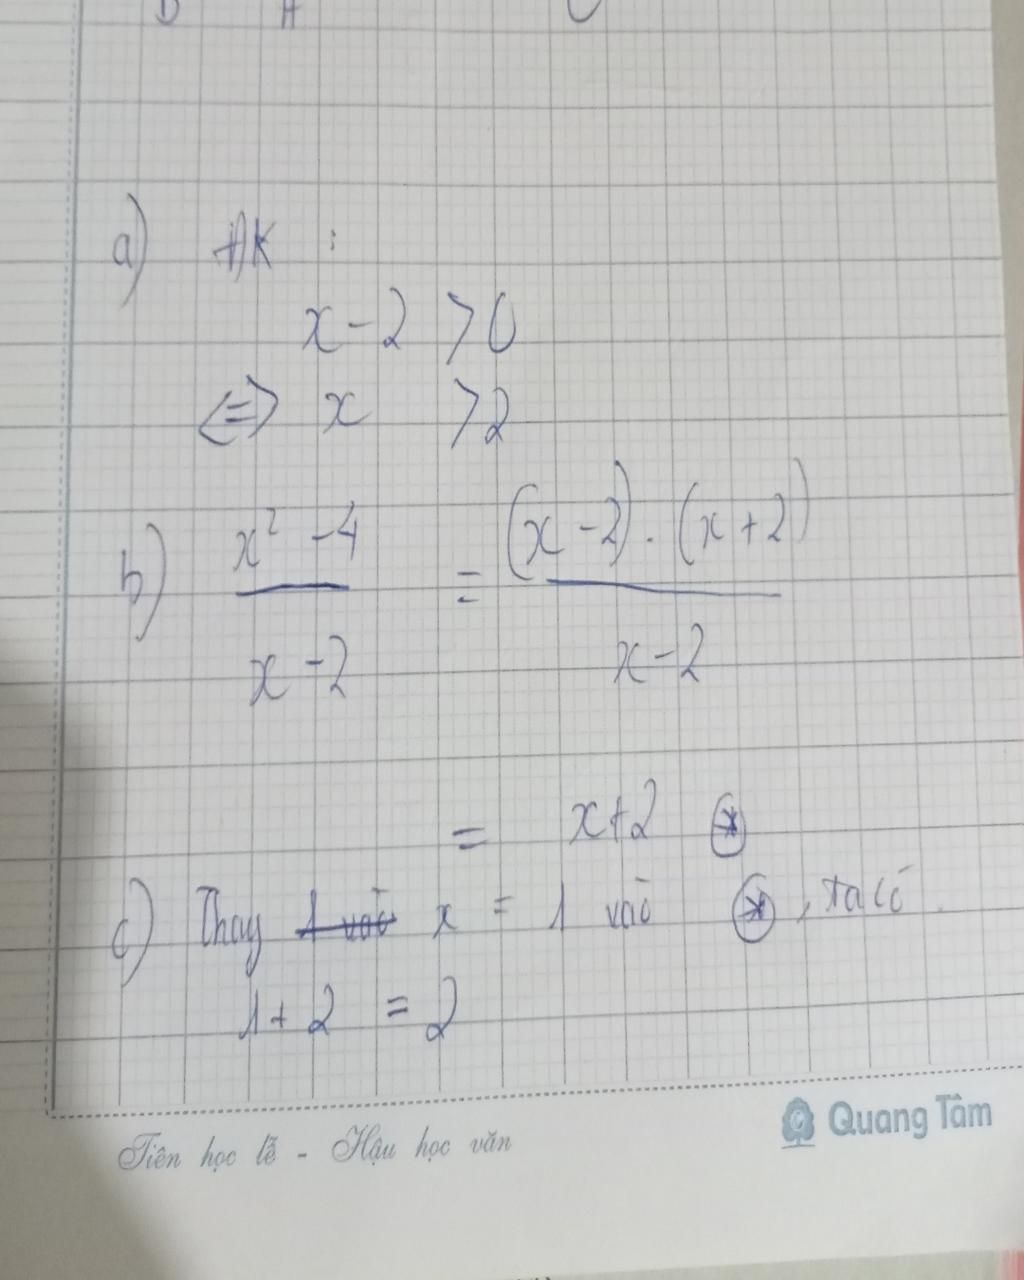 a) ĐK :
x - 2 > 0
<=> x > 2
b) x² - 4 / x - 2 = (x - 2) . (x + 2) / x - 2
= x + 2 (*)
c) Thay 1 vào x = 1 vào (*), ta có
1 + 2 = 2
Tiên học lễ - Hậu học văn
Quang Tâm